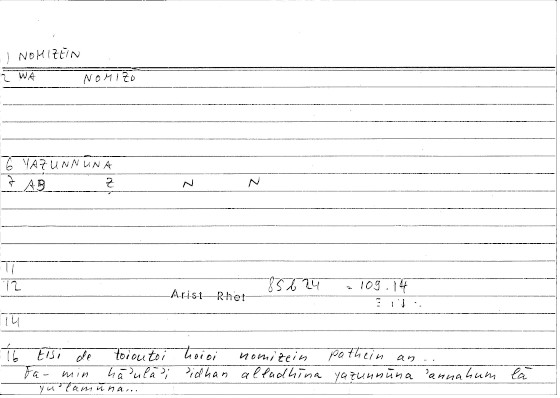 1 NOMIZEIN
2 WA NOMIZO
6 YAẒUNNŪNA
7 AB Ẓ N N
11
12 Arist Rhet 85b24 = 109.14
14
16 Eisi de toioutoi hoioi nomizein pathein an..
Fa- min hāʾulāʾi ʾidhan alladhīna yaẓunnūna ʾannahum lā
yuʾlamūna...